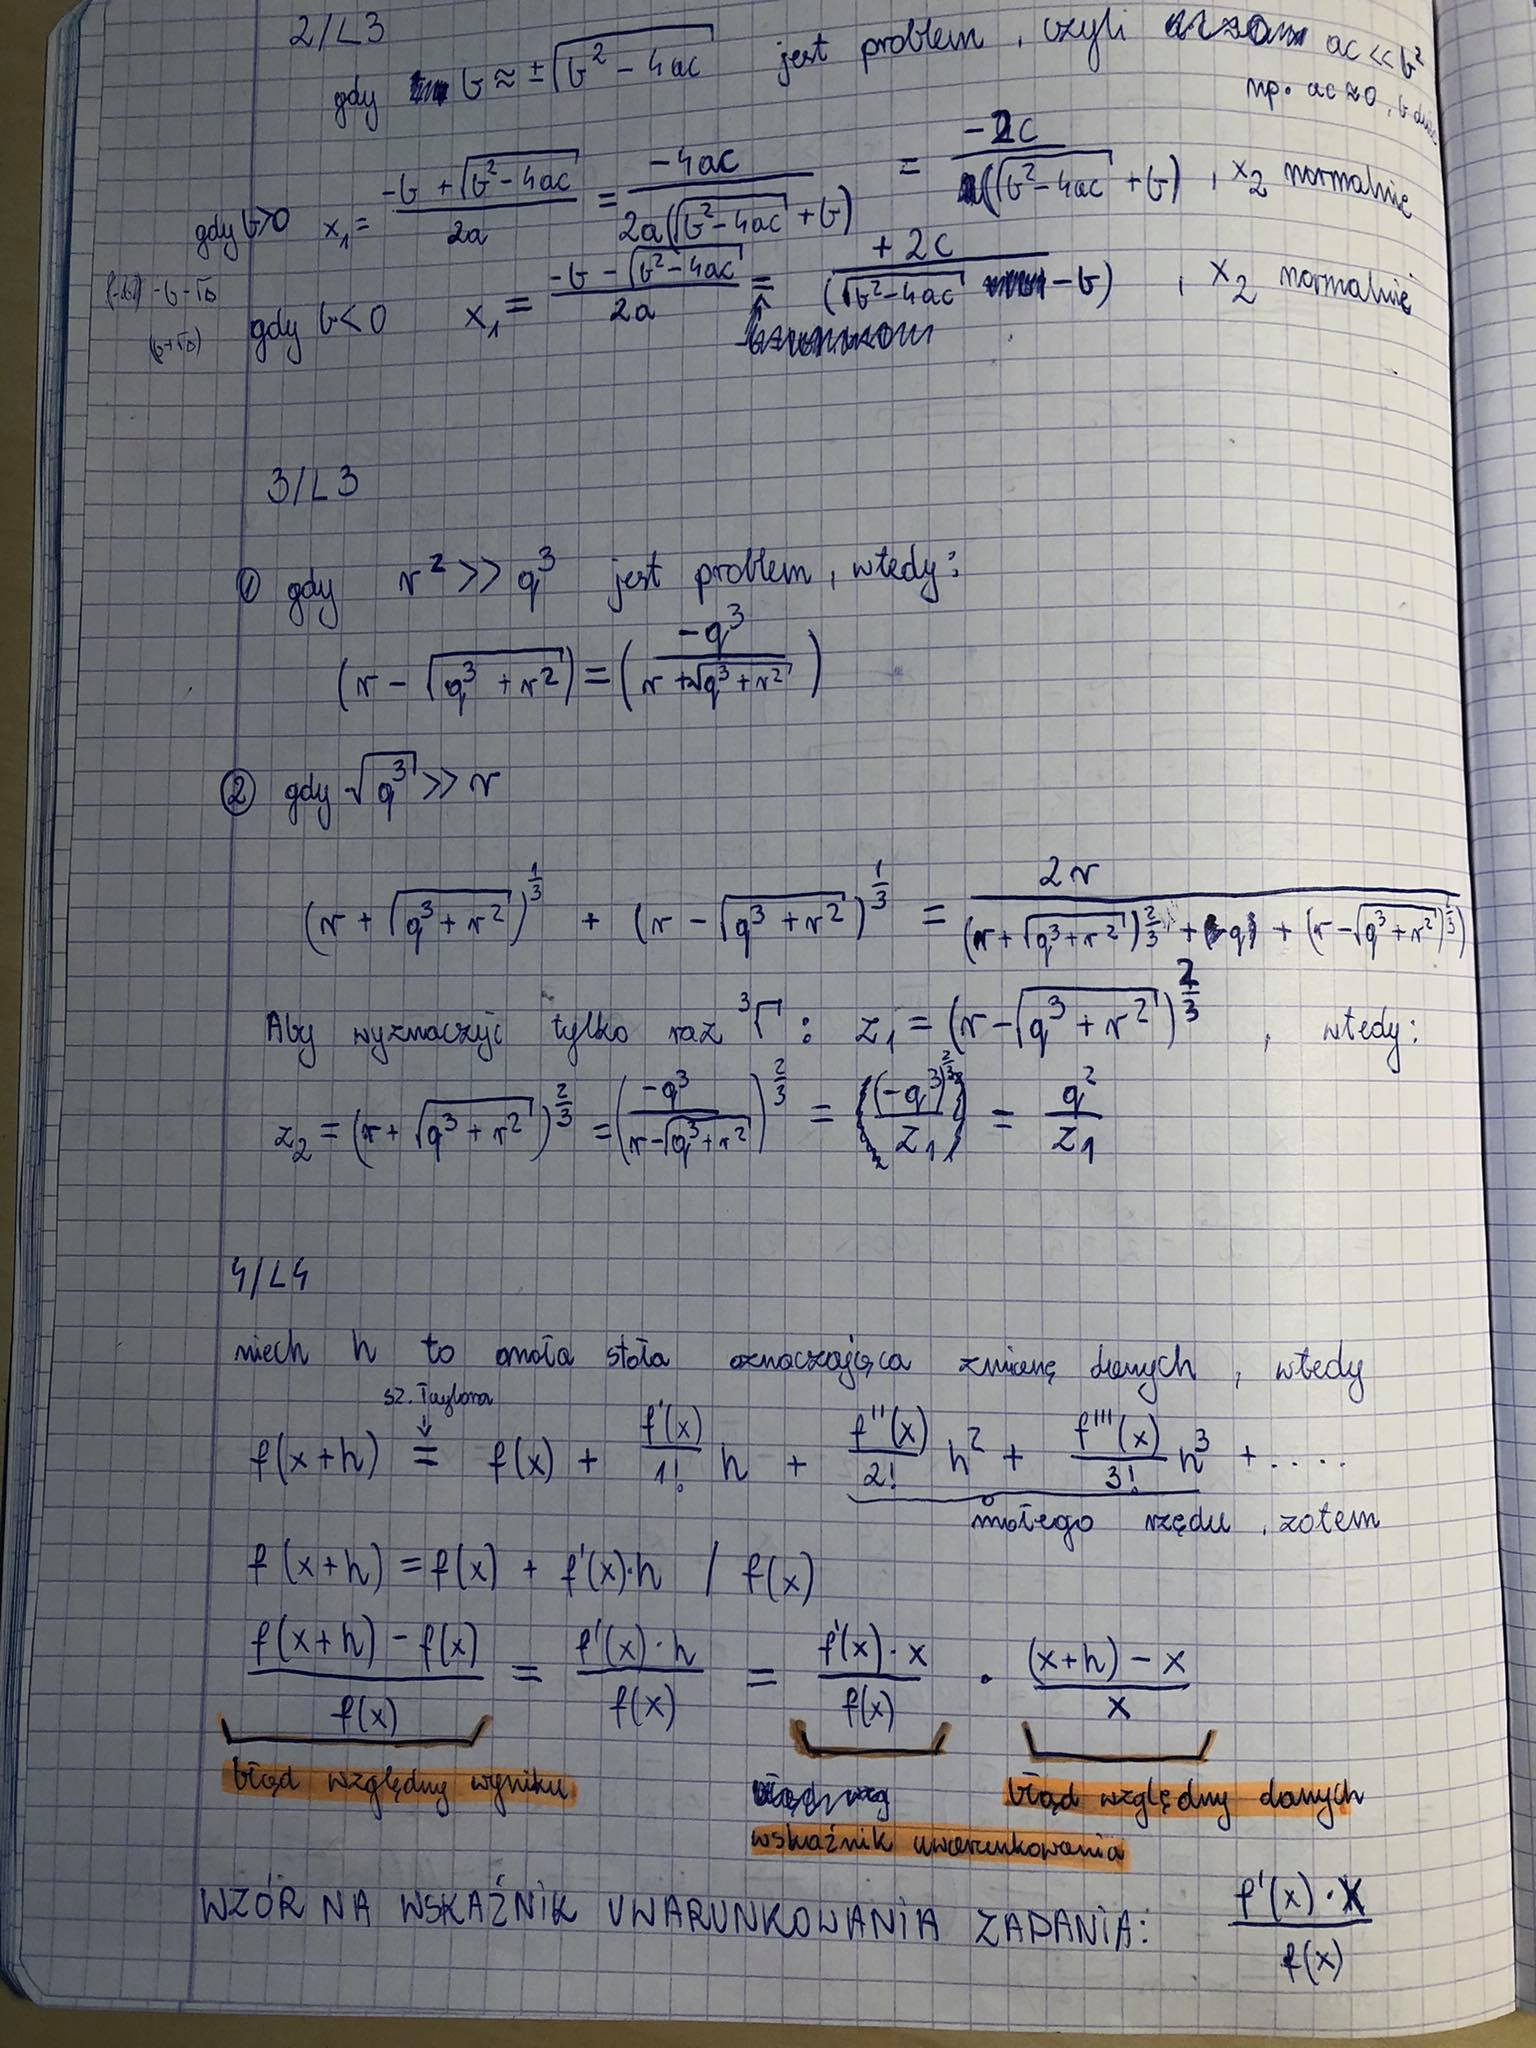 2/L3
gdy b ≈ ±√(b² - 4ac) jest problem, czyli ac << b²
np. ac ≈ 0, b duże
gdy b>0 x₁ = (-b + √(b² - 4ac))/(2a) = (-4ac)/(2a(√(b² - 4ac) + b)) = (-2c)/((√(b² - 4ac) + b)), x₂ normalnie
-b-√Δ
(b+√Δ)
gdy b<0 x₁ = (-b - √(b² - 4ac))/(2a) = (+2c)/((√(b² - 4ac) - b)), x₂ normalnie
3/L3
① gdy r² >> q³ jest problem, wtedy:
(r - √(q³ + r²)) = ((-q³)/(r + √(q³ + r²)))
② gdy √(q³) >> r
(r + √(q³ + r²))^(1/3) + (r - √(q³ + r²))^(1/3) = (2r)/((r + √(q³ + r²))^(2/3) + q + (r - √(q³ + r²))^(2/3))
Aby wyznaczyć tylko raz ³√ : z₁ = (r - √(q³ + r²))^(2/3), wtedy:
z₂ = (r + √(q³ + r²))^(2/3) = ((-q³)/(r - √(q³ + r²)))^(2/3) = ((-q³)^(2/3))/(z₁) = q²/z₁
4/L4
niech h to mała stała oznaczająca zmianę danych, wtedy
sz. Taylora
f(x+h) = f(x) + f'(x)/1! h + f''(x)/2! h² + f'''(x)/3! h³ + ....
małego rzędu, zatem
f(x+h) = f(x) + f'(x)·h / f(x)
(f(x+h) - f(x))/f(x) = (f'(x)·h)/f(x) = (f'(x)·x)/f(x) · ((x+h) - x)/x
błąd względny wyniku
błąd względny danych
wskaźnik uwarunkowania
WZÓR NA WSKAŹNIK UWARUNKOWANIA ZADANIA: (f'(x)·x)/f(x)